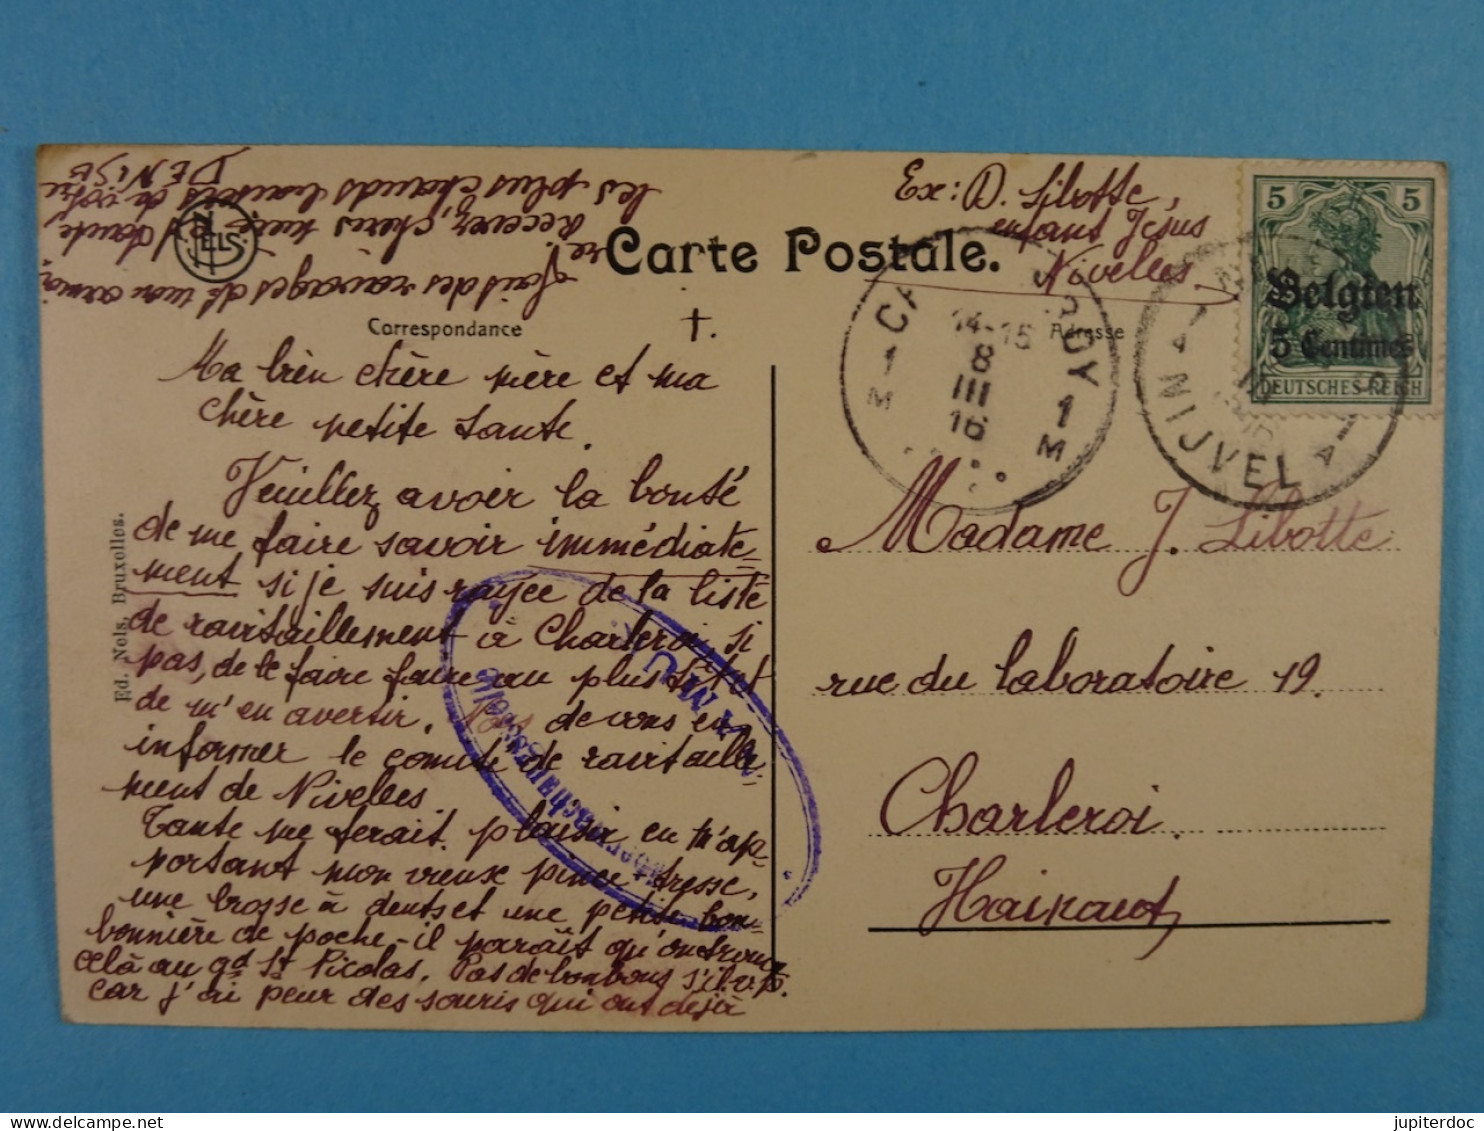 Ex: D. Libotte,
enfant Jésus
Nivelles
Carte Postale.
Correspondance
Adresse
†.
Ma bien chère mère et ma
chère petite tante.
Veuillez avoir la bonté
de me faire savoir immédiate-
ment si je suis rayée de la liste
de ravitaillement à Charleroi, si
pas, de le faire faire au plus tôt et
de m'en avertir. de vous en
informer le comité de ravitaille-
ment de Nivelles.
Tante me ferait plaisir en m'ap-
portant mon vieux pince-tresse,
une brosse à dents et une petite bon-
bonnière de poche - il paraît qu'on trouve
celà au gd St Nicolas. Pas de bonbons s.il.v.p.
car j'ai peur des souris qui ont déjà
fait des ravages ds mon armoi-
re. Recevez, chères mère
tante
les plus chauds baisers de votre
DENISE
NELS
Ed. Nels, Bruxelles.
Madame J. Libotte
rue du laboratoire 19.
Charleroi.
Hainaut
5 5
Belgien
5 Centimes
DEUTSCHES REICH
14-15
8
III
16
1 1
M M
NIJVEL
NAMUR
jupiterdoc